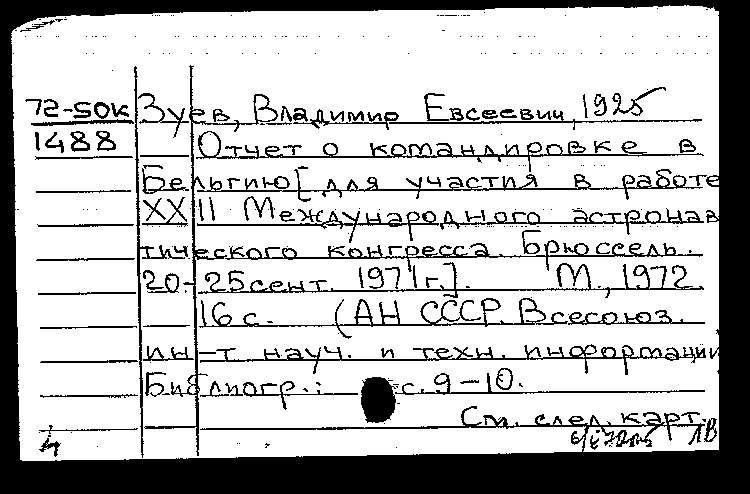 72-SOK Зуев, Владимир Евсеевич, 1925
1488 Отчет о командировке в
Бельгию [для участия в работе
XXII Международного астронав
тического конгресса. Брюссель.
20-25 сент. 1971 г.]. М., 1972.
16 с. (АН СССР. Всесоюз.
ин-т науч. и техн. информации
Библиогр.: с. 9-10.
См. след. карт.
4 ЛВ